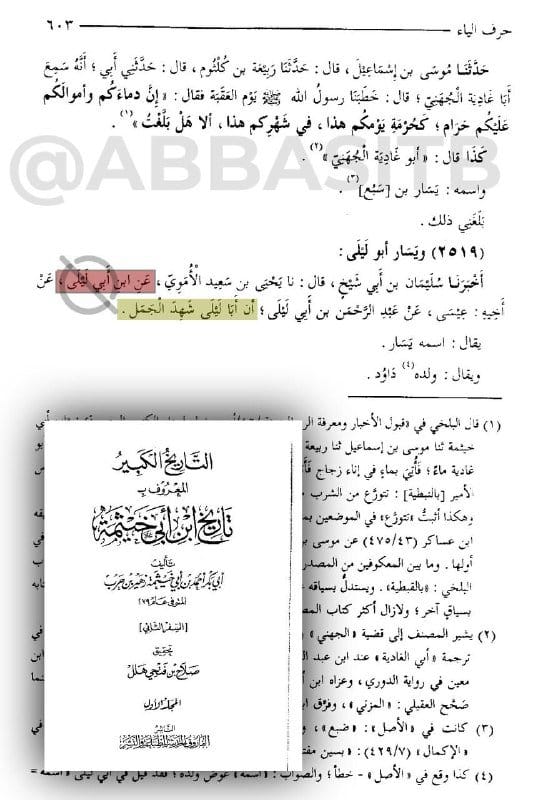 حرف الياء
٦٠٣
حَدَّثَنَا مُوسَى بن إسْمَاعِيْلَ ، قال : حَدَّثَنَا رَبِيْعَة بن كُلْثُوم ، قال : حَدَّثَنِي أَبِي ؛ أَنَّهُ سَمِعَ
أَبَا غَادِيَة الْجُهَنِيّ ؛ قَالَ : خَطَبَنَا رسولُ الله ﷺ يَوْم العَقَبَة فقال : « إنَّ دماءَكُم وأموالَكُم
عَلَيْكُم حَرَام ؛ كَحُرْمَةِ يَوْمِكُم هذا ، في شَهْرِكم هذا ، ألا هَلْ بَلَّغْتُ » (١) .
@ABBASITB
كَذَا قال : « أبو غَادِيَة الْجُهَنِيّ » (٢) .
واسمه : يَسَار بن [سَبُع] (٣) .
بَلَغَنِي ذلك .
(٢٥١٩) ويَسَار أبو لَيْلَى :
أَخْبَرَنَا سُلَيْمَان بن أبي شَيْخ ، قال : نا يَحْيَى بن سَعِيد الْأُمَوِيّ ، عَن ابن أَبِي لَيْلَى ، عَنْ
أَخِيهِ : عِيْسَى ، عَنْ عَبْد الرَّحْمَن بن أَبِي لَيْلَى ؛ أن أَبَا لَيْلَى شَهِدَ الْجَمَل .
يقال : اسمه يَسَار .
ويقال : ولده (٤) دَاوُد .
(١) قال البلخي في «قبول الأخبار ومعرفة
خيثمة ثنا موسى بن إسماعيل ثنا ربيعة
غادية ماءً ؛ فَأُتِيَ بماءٍ في إناء زجاج
الأمير [بالنبطية] : تتورَّع من الشرب
وهكذا أثبتُّ «تتورَّع» في الموضعين
ابن عساكر (٤٧٥/٤٣) عن موسى بن
أولها . وما بين المعكوفين من المصدر
البلخي : «بالقبطية» . ويستدلُّ بسياقه
بسياقٍ آخر ؛ ولازال أكثر كتاب
(٢) يشير المصنف إلى قضية «الجهني»
ترجمة «أبي الغادية» عند ابن عبد
معين في رواية الدوري، وعزاه ابن
صَحَّح العقيلي : «المزني» ، وفرَّق
(٣) كانت في «الأصل» : «ضبع»
«الإكمال» (٤٢٩/٧) : «بسين
(٤) كذا وقع في «الأصل» - خطأ ؛ والصواب : «اسمه» عوض ولده ؛ فقد قيل في أبي ليلى «اسمه =
التاريخ الكبير
المعروف بـ
تاريخ ابن أبي خيثمة
تأليف
أبي بكر أحمد بن أبي خيثمة زهير بن حرب
المتوفى عام ٢٧٩
[السفر الثاني]
تحقيق
صلاح بن فتحي هلل
المجلد الأول
الناشر
الفاروق الحديثة للطباعة والنشر